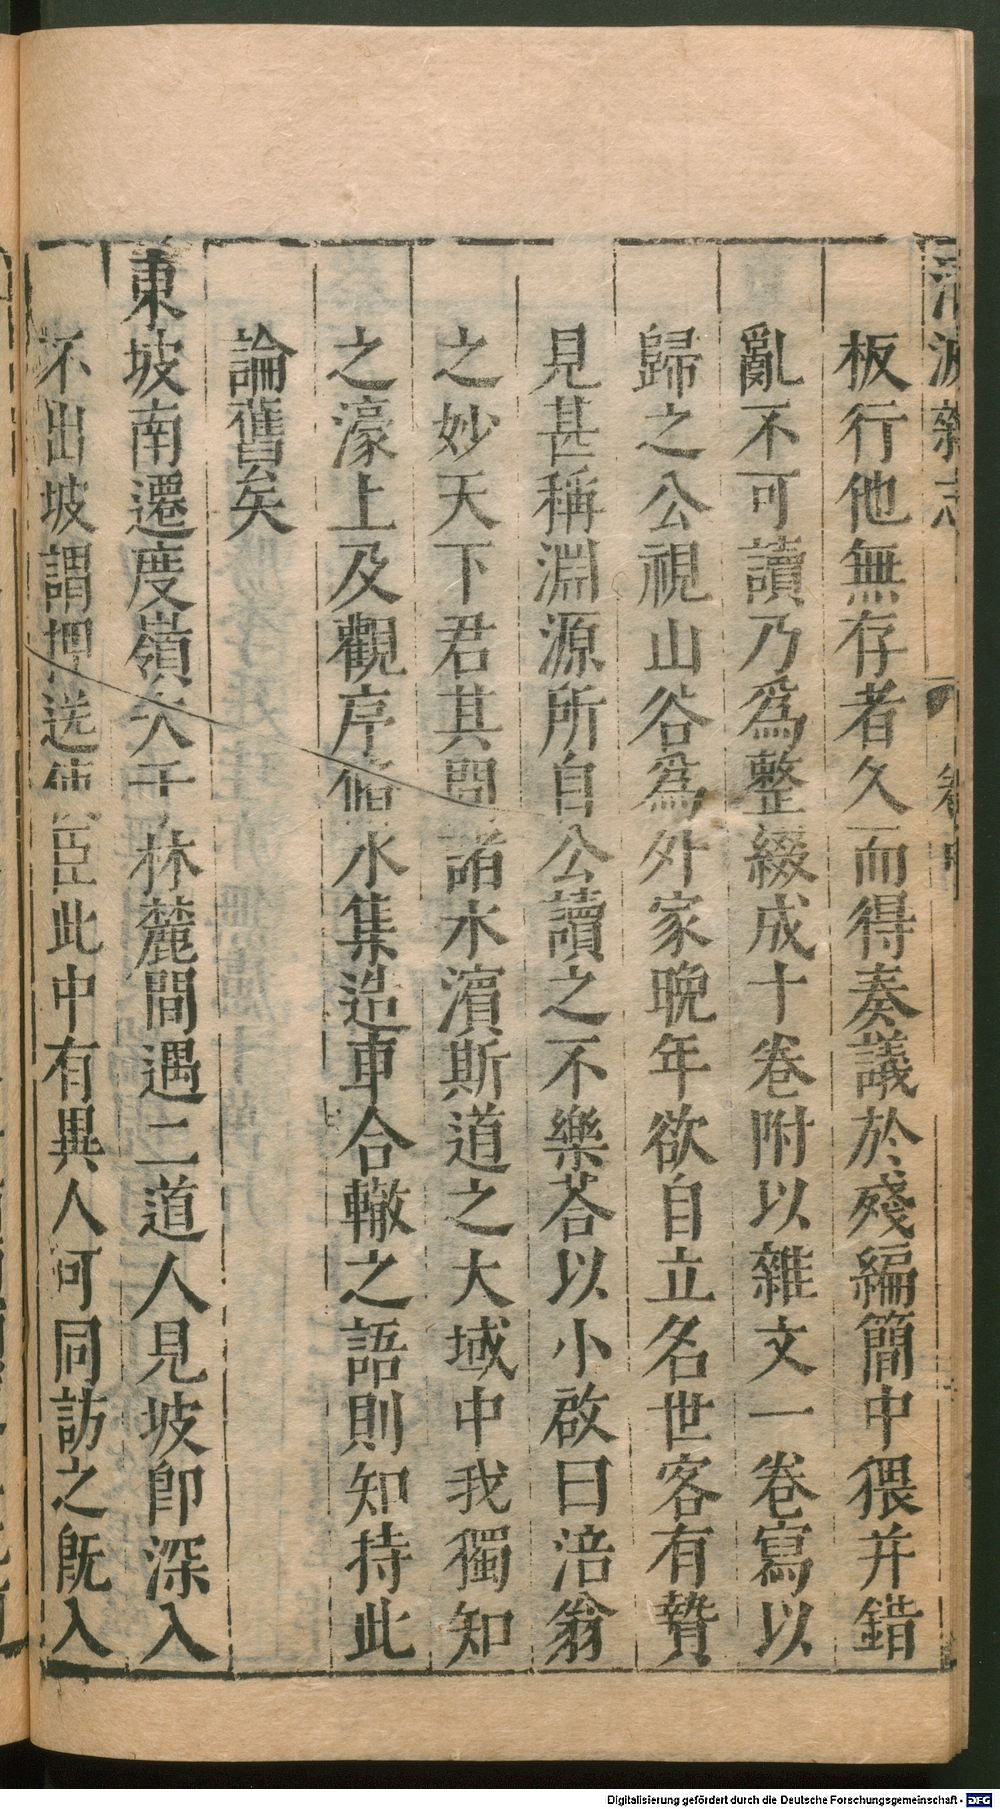 清波雜志
卷中
板行他無存者久而得奏議於殘編簡中猥并錯
亂不可讀乃爲整綴成十卷附以雜文一卷寫以
歸之公視山谷爲外家晚年欲自立名世客有贄
見甚稱淵源所自公讀之不樂荅以小啟曰涪翁
之妙天下君其問諸水濱斯道之大域中我獨知
之濠上及觀序儲水集造車合轍之語則知持此
論舊矣
東坡南遷度嶺次于林麓間遇二道人見坡卽深入
不出坡謂押送使臣此中有異人可同訪之旣入
Digitalisierung gefördert durch die Deutsche Forschungsgemeinschaft - DFG